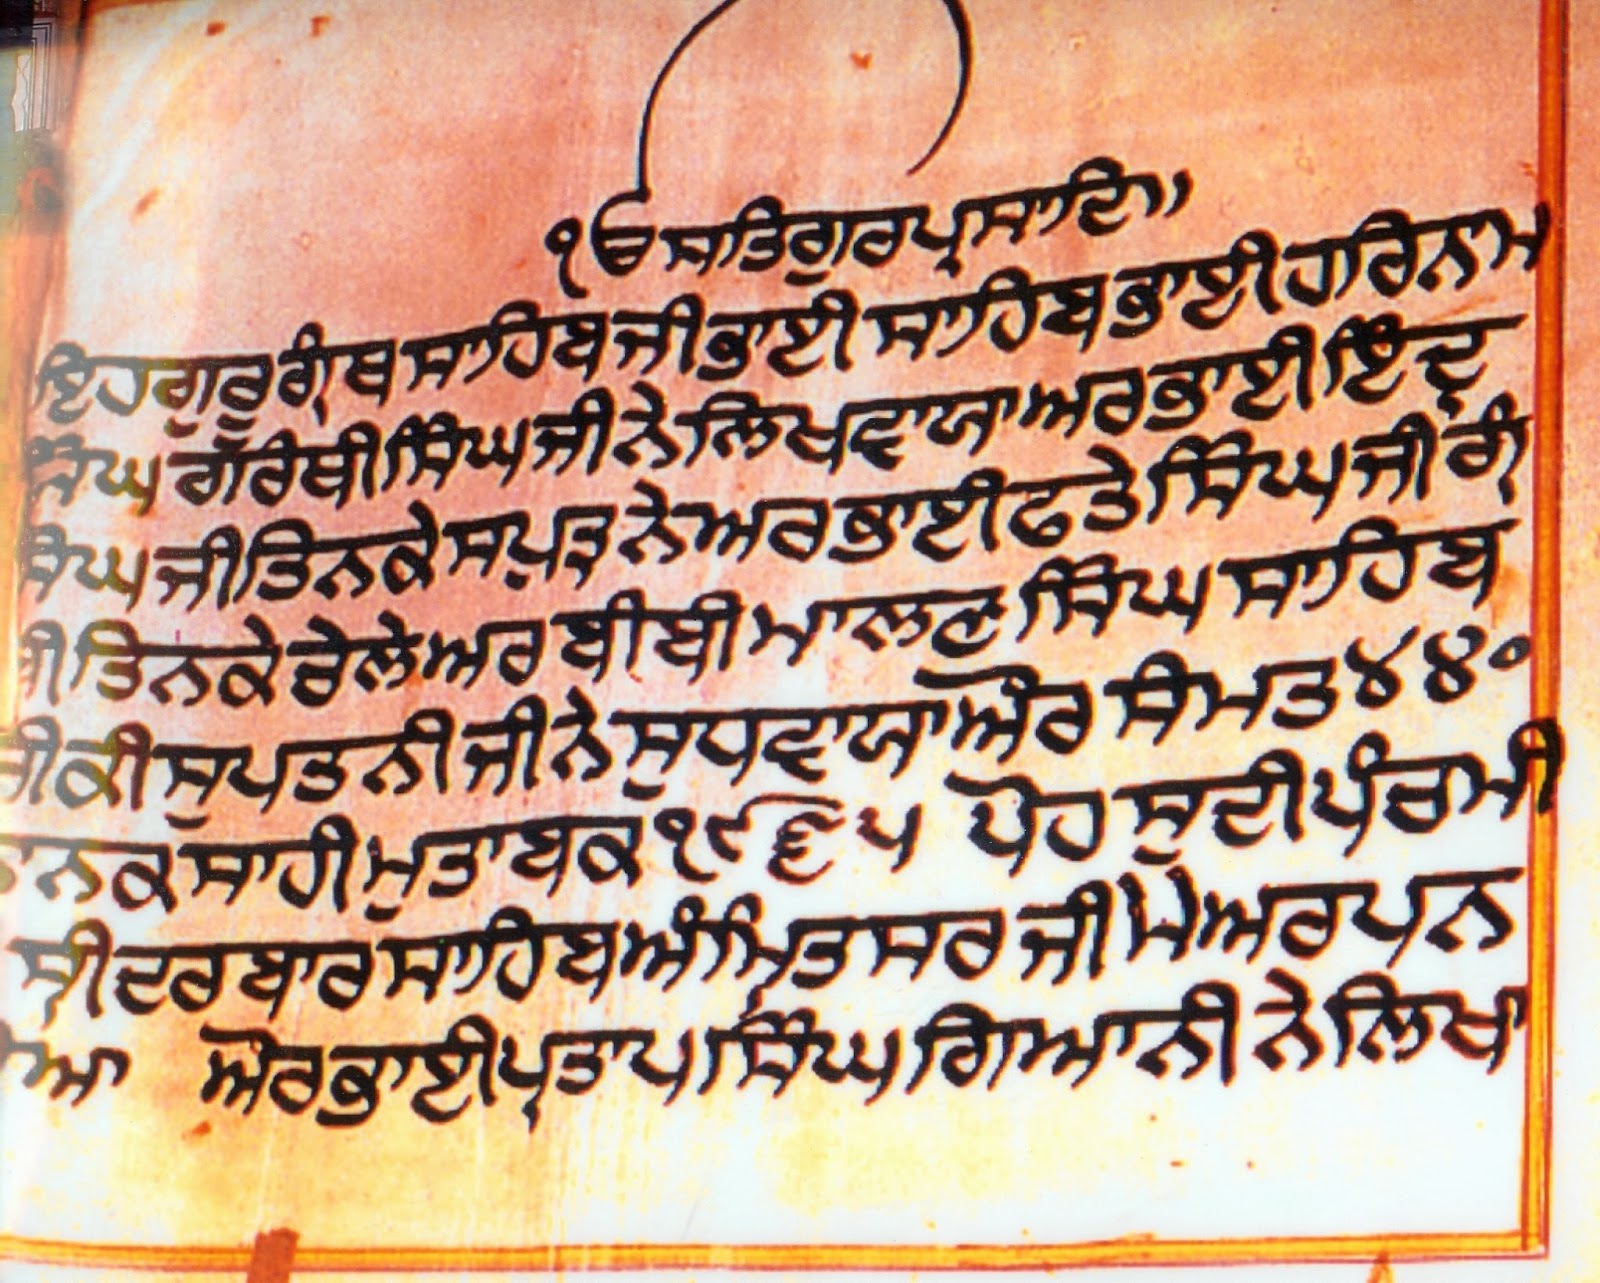 ੴ ਸਤਿਗੁਰਪ੍ਰਸਾਦਿ॥
ਇਹ ਗੁਰੂ ਗ੍ਰੰਥ ਸਾਹਿਬ ਜੀ ਭਾਈ ਸਾਹਿਬ ਭਾਈ ਹਰਿਨਾਮ
ਸਿੰਘ ਗਰੰਥੀ ਸਿੰਘ ਜੀ ਨੇ ਲਿਖਵਾਯਾ ਅਰ ਭਾਈ ਇੰਦ੍ਰ
ਸਿੰਘ ਜੀ ਤਿਨਕੇ ਸਪੁਤ੍ਰ ਨੇ ਅਰ ਭਾਈ ਫਤੇ ਸਿੰਘ ਜੀ ਗ੍ਰੰ
ਥੀ ਤਿਨਕੇ ਚੇਲੇ ਅਰ ਬੀਬੀ ਮਾਲਣ ਸਿੰਘ ਸਾਹਿਬ
ਜੀ ਕੀ ਸੁਪਤਨੀ ਜੀ ਨੇ ਸੁਧਵਾਯਾ ਔਰ ਸੰਮਤ ੪੪੦
ਨਾਨਕ ਸਾਹੀ ਮੁਤਾਬਕ ੧੯੬੫ ਪੋਹ ਸੁਦੀ ਪੰਚਮੀ
ਸ੍ਰੀ ਦਰਬਾਰ ਸਾਹਿਬ ਅੰਮ੍ਰਿਤਸਰ ਜੀ ਮੇਂ ਅਰਪਨ
ਕੀਆ ਔਰ ਭਾਈ ਪ੍ਰਤਾਪ ਸਿੰਘ ਗਿਆਨੀ ਨੇ ਲਿਖਾ